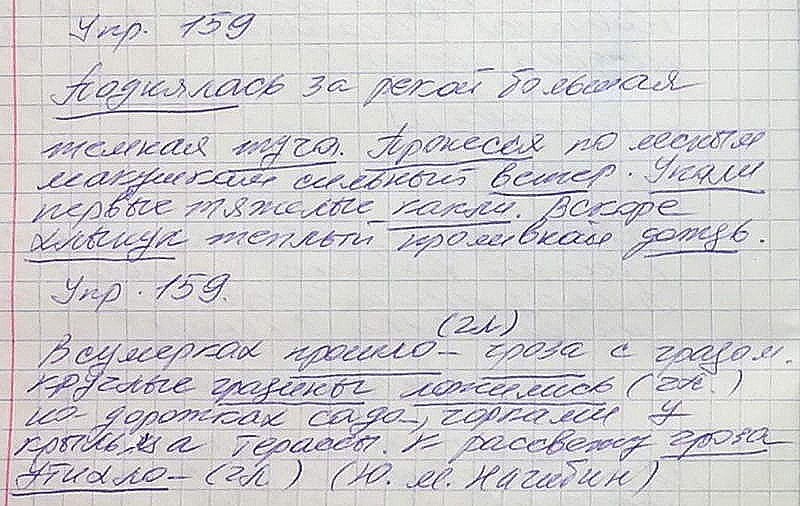 Упр. 159
Поднялась за рекой большая
темная туча. Пронесся по лесным
макушкам сильный ветер. Упали
первые тяжелые капли. Вскоре
хлынул теплый проливной дождь.
Упр. 159.
(гл)
В сумерках прошло- гроза с градом.
круглые градины ложились (гл.)
на дорожках садо-, горками у
крыльца терассы. К рассвету гроза
утихло- (гл) (Ю. М. Нагибин)